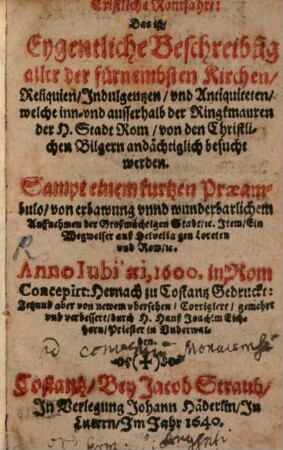 Cristliche Romfahrt:
Das ist/
Eygentliche Beschreibūg
aller der fürnembsten Kirchen/
Reliquien/Indulgentzen/vnd Antiquiteten/
welche inn-vnd ausserhalb der Ringkmauren
der H. Stadt Rom/von den Christli-
chen Bilgern andächtiglich besucht
werden.
Sampt einem kurtzen Præam-
bulo/von erbawung vnnd wunderbarlichem
Auffnehmen der Großmächtigen Stadt/ꝛc. Item/Ein
Wegweiser auß Helvetia gen Loreten
vnd Rom/ꝛc.
Anno Iubilæi, 1600. in Rom
Concepirt: Hernach zu Costantz Gedruckt:
Jetzund aber von newem vbersehen/Corrigiert/gemehrt
vnd verbessert/durch H. Hanß Joachim Eich-
horn/Priester in Vnderwal-
den.
Costantz/Bey Jacob Straub/
In Verlegung Johann Häderlin/In
Lucern/Im Jahr 1640.